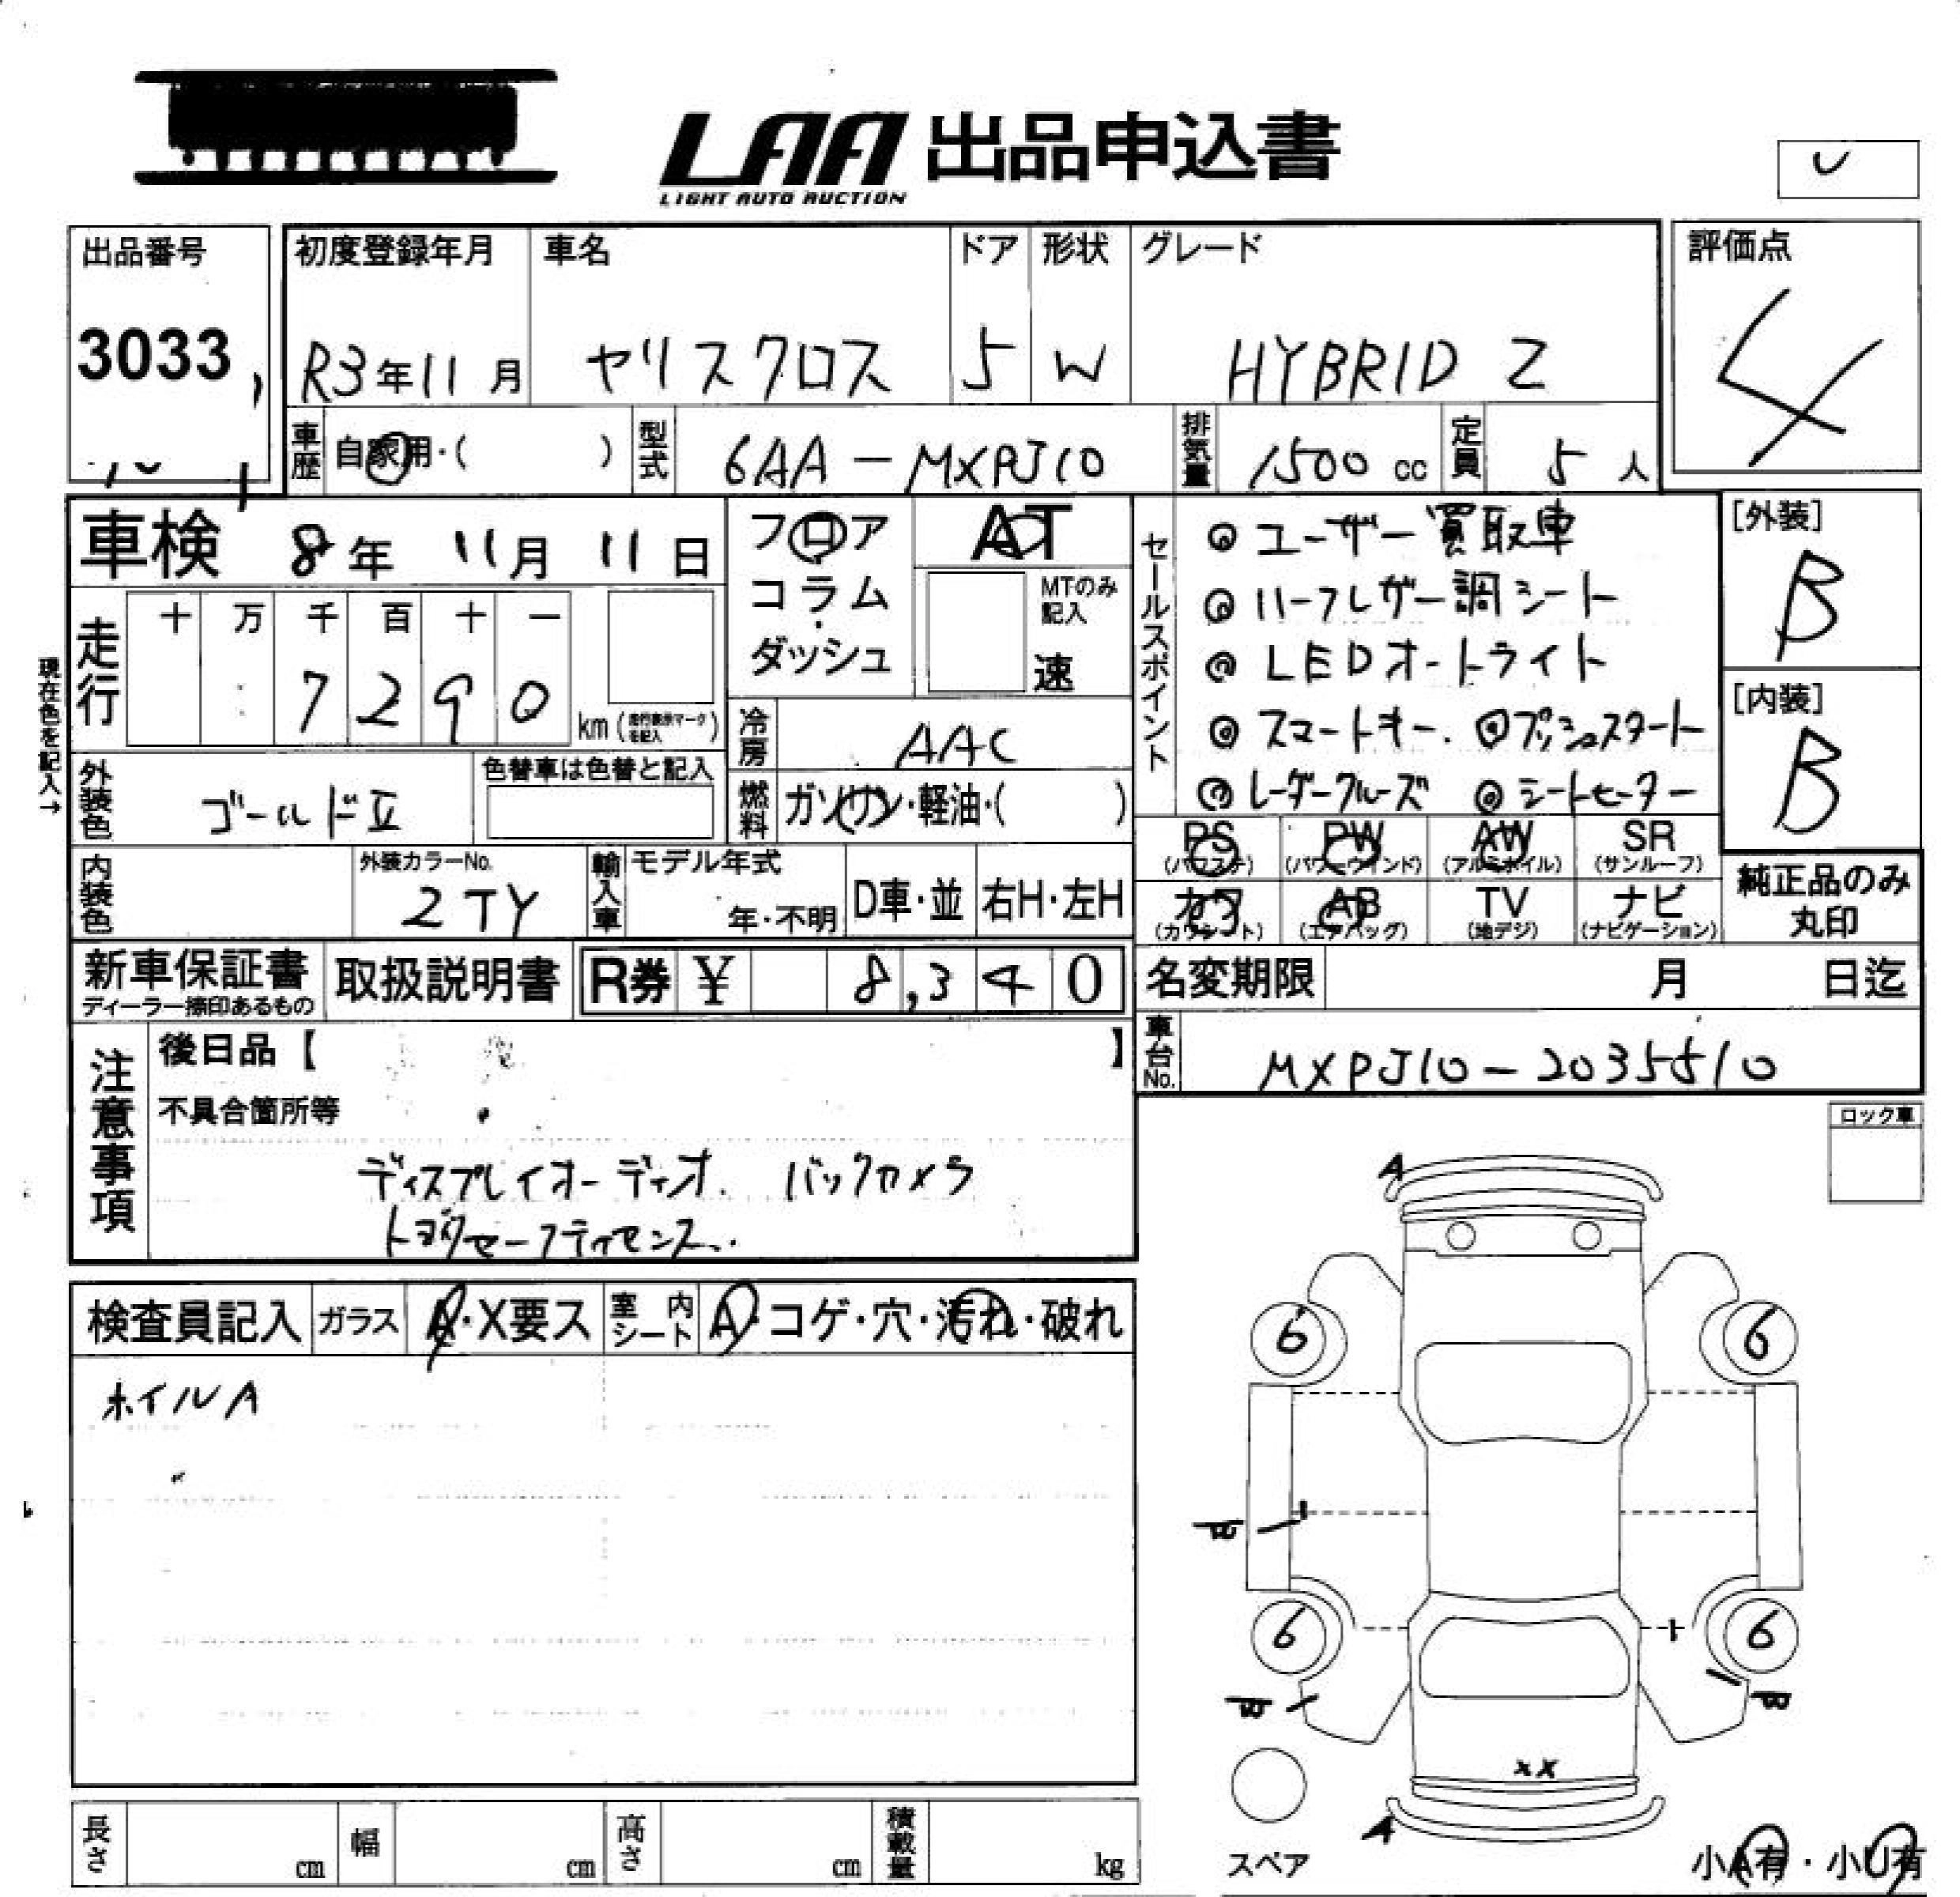 LAA 出品申込書
LIGHT AUTO AUCTION
出品番号
3033
初度登録年月
R3年11月
車名
ヤリスクロス
ドア
5
形状
W
グレード
HYBRID Z
評価点
4
車歴
自家用・( )
型式
6AA-MXPJ10
排気量
1500cc
定員
5人
車検 8年 11月 11日
フロア
コラム
・
ダッシュ
AT
MTのみ
記入
速
現在色を記入→
走行
十 万 千 百 十 一
7 2 9 0
km(走行表示マークを記入)
冷房
AAC
燃料
ガソリン・軽油・( )
外装色
ゴールドII
色替車は色替と記入
内装色
外装カラーNo.
2TY
輸入車
モデル年式
年・不明
D車・並
右H・左H
セールスポイント
◎ユーザー買取車
◎ハーフレザー調シート
◎LEDオートライト
◎スマートキー. ◎プッシュスタート
◎レーダークルーズ ◎シートヒーター
[外装]
B
[内装]
B
PS
(パワステ)
PW
(パワーウインド)
AW
(アルミホイル)
SR
(サンルーフ)
カワ
(カワシート)
AB
(エアバッグ)
TV
(地デジ)
ナビ
(ナビゲーション)
純正品のみ
丸印
新車保証書
ディーラー捺印あるもの
取扱説明書
R券 ¥ 8,340
名変期限 月 日迄
車台No.
MXPJ10-2035510
注意事項
後日品【 】
不具合箇所等
ディスプレイオーディオ. バックカメラ
トヨタセーフティセンス..
ロック車
検査員記入
ガラス
A・X要ス
室内シート
A・コゲ・穴・汚れ・破れ
ホイルA
A
6
6
6
6
XX
A
スペア
小A有・小U有
長さ cm
幅 cm
高さ cm
積載量 kg